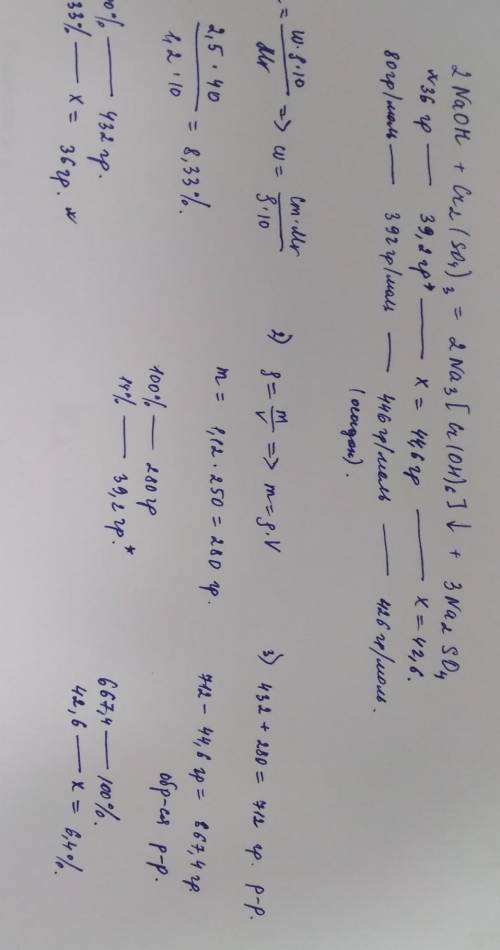 2 NaOH + Cr₂(SO₄)₃ = 2Na₃[Cr(OH)₆]↓ + 3Na₂SO₄
≈36 гр — 39,2 гр* — x = 44,6 гр — x = 42,6.
80гр/моль — 392 гр/моль — 446 гр/моль — 426 гр/моль.
(осадок).
= w·ρ·10 / Mr => w = Cm·Mr / ρ·10
2,5·40 / 1,2·10 = 8,33%.
0% — 432 гр.
33% — x = 36гр.
2) ρ = m/V => m = ρ·V
m = 1,12·250 = 280 гр.
100% — 280гр
14% — 39,2гр.*
3) 432 + 280 = 712 гр. р-р.
712 - 44,6 гр = 667,4 гр
обр-ся р-р.
667,4 — 100%.
42,6 — x = 6,4%.